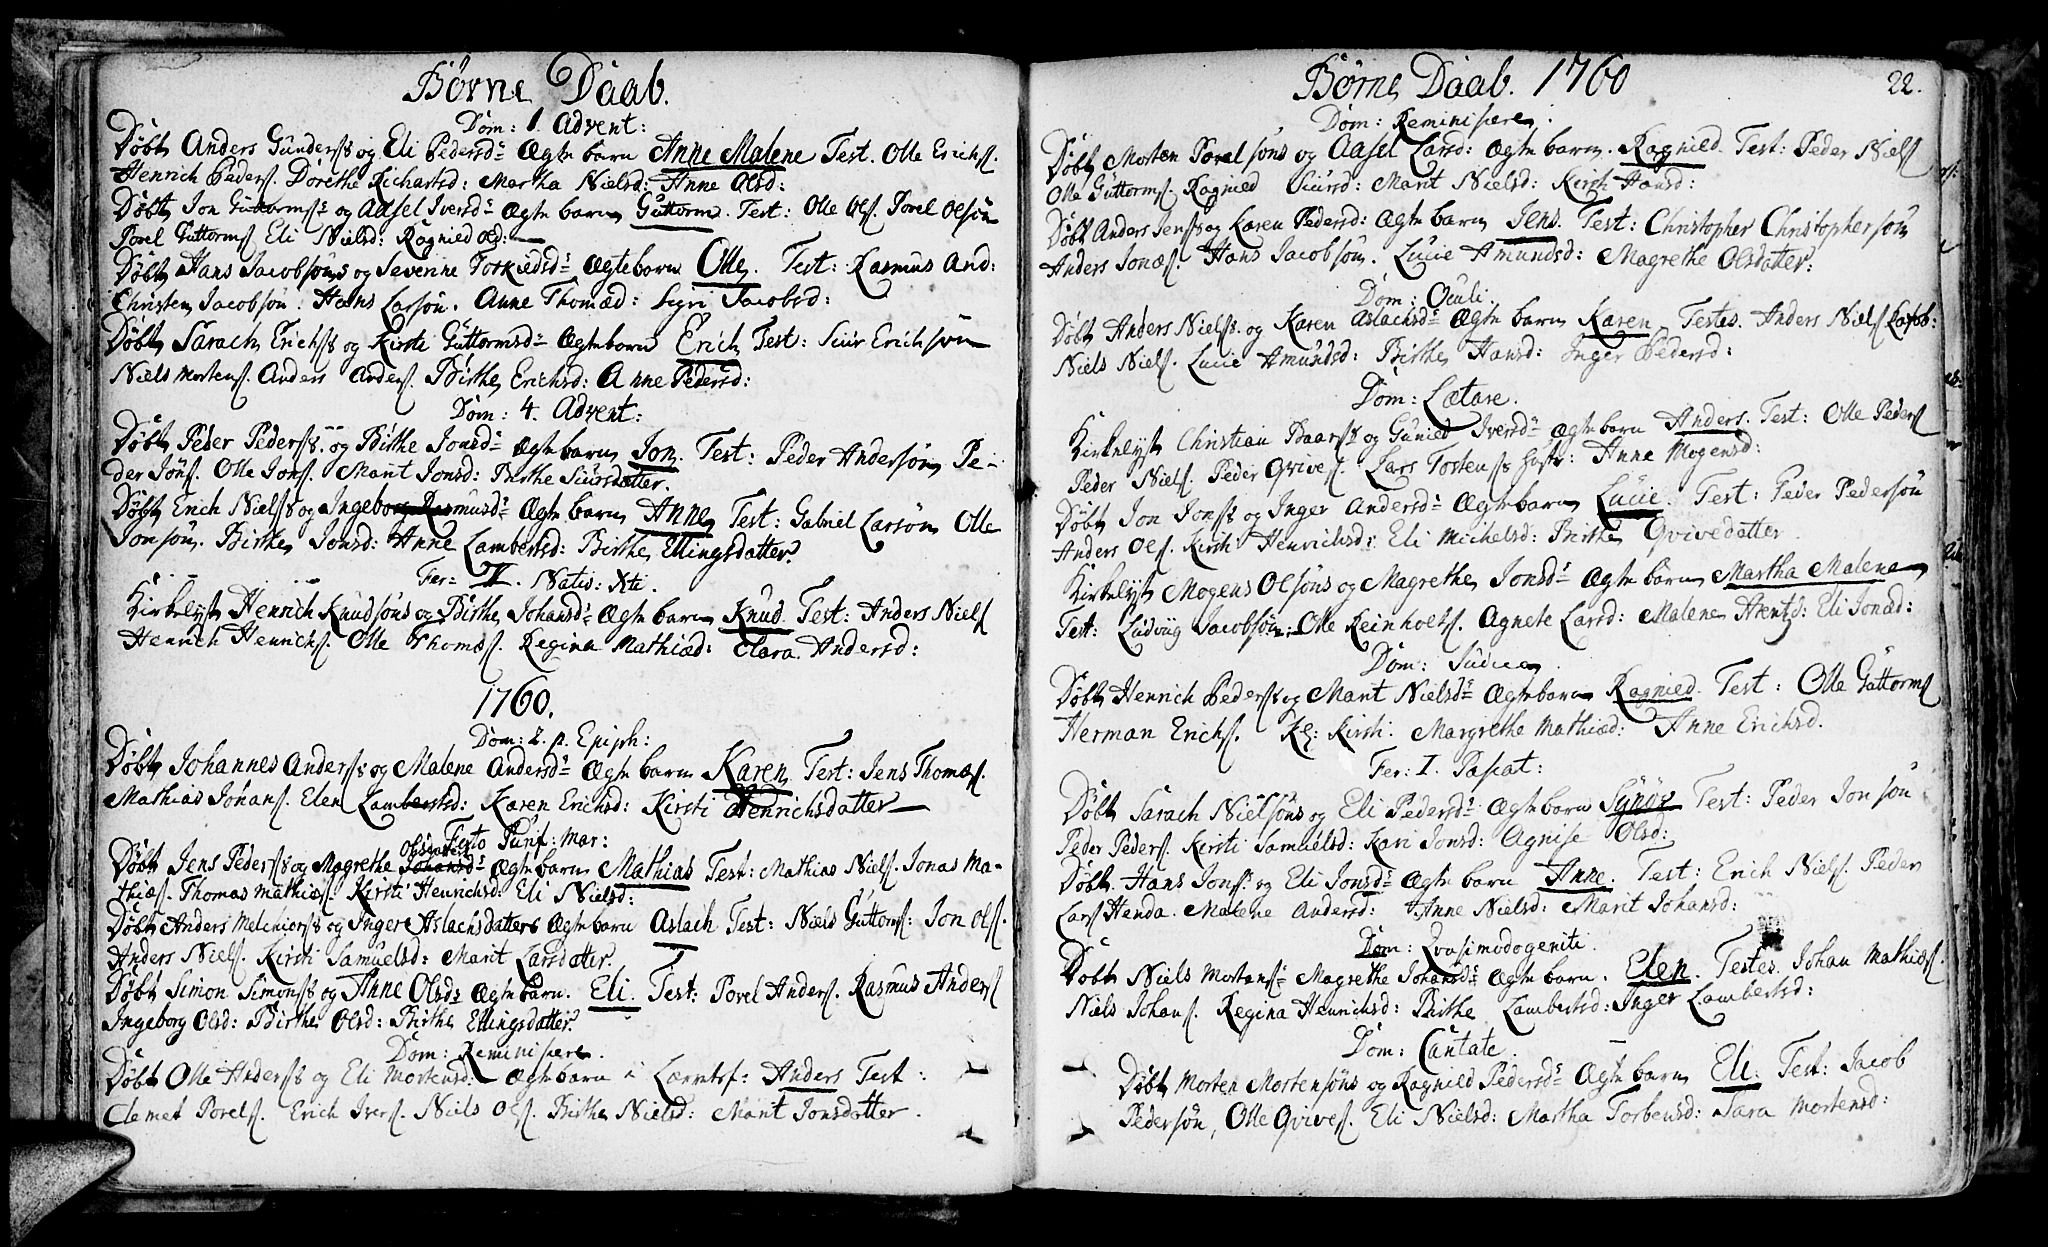 Børne Daab.
Dom: 1. Advent:
Døbt Anders Gunderss og Eli Pedersd: Ægte barn Anne Malene Test. Olle Erichs.
Henrich Peders. Dorethe Richartsd: Martha Nielsd: Anne Olsd:
Døbt Jon Guttormss og Aasel Iversd: Ægte barn Guttorm. Test: Olle Ols. Povel Olsøn
Povel Guttorms Eli Nielsd: Ragnied Olsd:
Døbt Hans Jacobsøns og Severine Torkiedsd: Ægte barn Olle. Test: Rasmus And:
Christen Jacobsøn. Hans Larsøn. Anne Thomæd: Sigri Jacobsd:
Døbt Sarach Erichss og Kirsti Guttormsd: Ægte barn Erich Test: Siur Erichsøn
Niels Mortens. Anders Anders. Birthe Erichsd: Anne Pedersd:
Dom: 4. Advent:
Døbt Peder Pederss. og Birthe Jonsd: Ægte barn Jon. Test: Peder Andersøn Pe-
der Jons. Olle Jons. Marit Jonsd: Birthe Siursdatter.
Døbt Erich Nielss og Ingeborg Rasmusd: Ægte barn Anne Test: Gabriel Larsøn Olle
Jonsøn. Birthe Jonsd: Anne Lambertsd: Birthe Ellingsdatter.
Fer: II. Nativ: Xti.
Kirkelyst Henrich Knudsøns og Birthe Johansd: Ægte barn Knud. Test: Anders Niels
Henrich Henrichs. Olle Thomæs. Regina Mathiæd: Clara Andersd:
1760.
Dom: 2. p. Epiph:
Døbt Johannes Anderss og Malene Andersd: Ægte barn Karen Test: Jens Thomæs.
Mathias Johans. Elen Lambertsd: Karen Erichsd: Kirsti Henrichsdatter
Festo Purif: Mar:
Døbt Jens Pederss og Magrethe Johansd: Ægte barn Mathias Test: Mathias Niels. Jonas Ma-
thiæs. Thomas Mathiæs. Kirsti Henrichsd: Eli Nielsd:
Døbt Anders Melchiorss og Inger Aslachsdatters Ægte barn Aslach Test: Niels Guttorms: Jon Ols.
Anders Niels. Kirsti Samuelsd: Marit Larsdatter.
Døbt Simon Simonss og Anne Olsds Ægte barn. Eli. Test: Povel Anders. Rasmus Anders
Ingeborg Olsd: Birthe Olsd: Birthe Ellingsdatter.
Dom: Reminiscere.
Døbt Olle Anderss og Eli Mortensd: Ægte barn i Anders Test:
Clemet Povels. Erich Ivers. Niels Ols. Birthe Nielsd: Marit Jonsdatter.
Børne Daab. 1760
22.
Dom: Reminiscere.
Døbt Morten Povelsøns og Aasel Larsd: Ægte barn. Ragnied. Test: Peder Niels
Olle Guttorms. Ragnied Siursd: Marit Nielsd: Kirsti Hansd:
Døbt Anders Jenss og Karen Pedersd: Ægte barn Jens. Test: Christopher Christophersøn
Anders Jonæs. Hans Jacobsøn. Lucie Amundsd: Magrethe Olsdatter.
Dom: Oculi.
Døbt Anders Nielss. og Karen Aslachsd: Ægte barn Karen Testes. Anders Niels
Niels Niels. Lucie Amundsd: Birthe Hansd: Inger Pedersd:
Dom: Lætare.
Kirkelyst Christian Baarss og Gunild Iversd: Ægte barn Anders. Test: Olle Peders
Peder Niels. Peder Qvives. Lars Tostenss Anne Mogensd:
Døbt Jon Jonss og Inger Andersd: Ægte barn Lucie. Test: Peder Pedersøn
Anders Ols. Kirsti Henrichsd: Eli Michelsd: Birthe Qvivedatter.
Kirkelyst Mogens Olsøns og Magrethe Jonsd: Ægte barn Martha Malena
Test: Ludvig Jacobsøn, Olle Reinholts. Agnete Larsd: Malene Arentsd: Eli Jonæd:
Dom: Judica.
Døbt Henrich Pederss og Marit Nielsd: Ægte barn Ragnied. Test: Olle Guttorms
Herman Erichs. Kirsti. Margrethe Mathiæd: Anne Erichsd.
Fer: I. Pascat:
Døbt Sarach Nielsøns og Eli Pedersd: Ægte barn Synøv Test: Peder Jonsøn
Peder Peders. Kirsti Samuelsd: Kari Jonsd: Agnise Olsd:
Døbt Hans Jonss. og Eli Jonsd: Ægte barn Anne. Test: Erich Niels. Peder
Lars Henda. Malene Andersd: Anne Nielsd: Marit Johansd:
Dom: Qvasimodogeniti.
Døbt Niels Mortens: Magrethe Johansd: Ægte barn. Elen. Testes. Johan Mathiæs.
Niels Johans. Regina Henrichsd: Birthe Lambertsd: Inger Lambertsd:
Dom: Cantate.
Døbt Morten Mortensøns og Ragnild Pedersd: Ægte barn Eli. Test: Jacob
Pedersøn, Olle Qvives. Eli Nielsd: Martha Torbensd: Sara Mortensd: